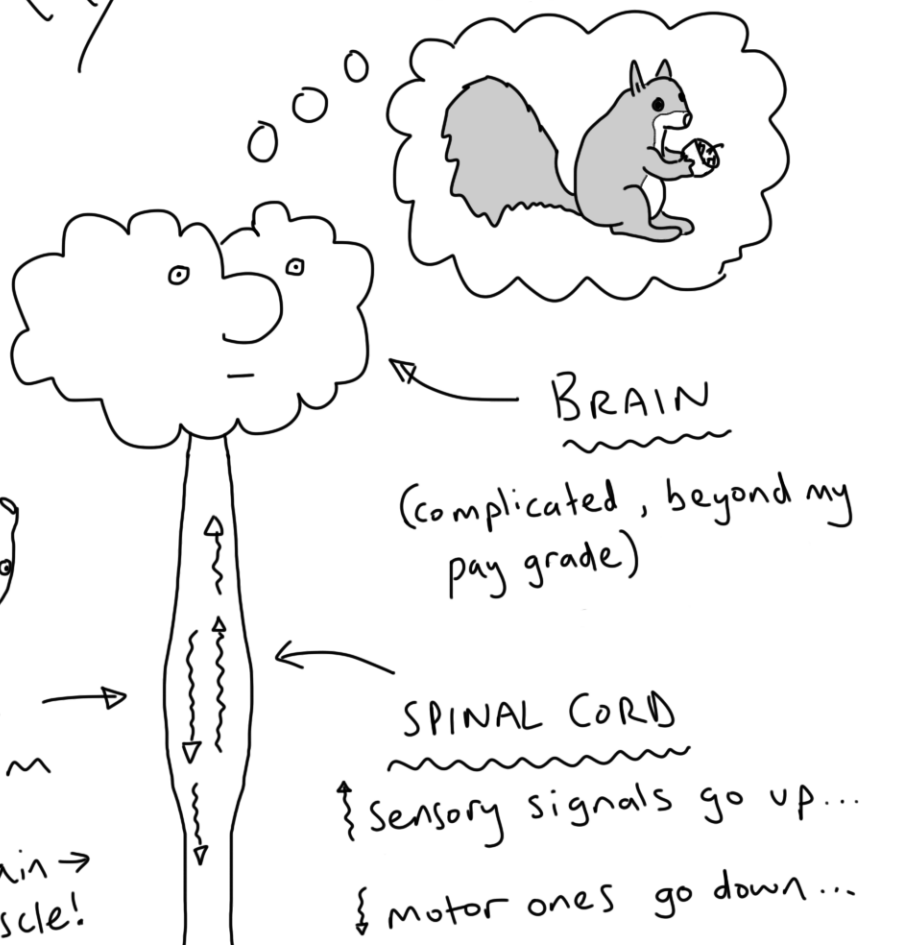 BRAIN
(complicated, beyond my
pay grade)
SPINAL CORD
sensory signals go up...
motor ones go down...